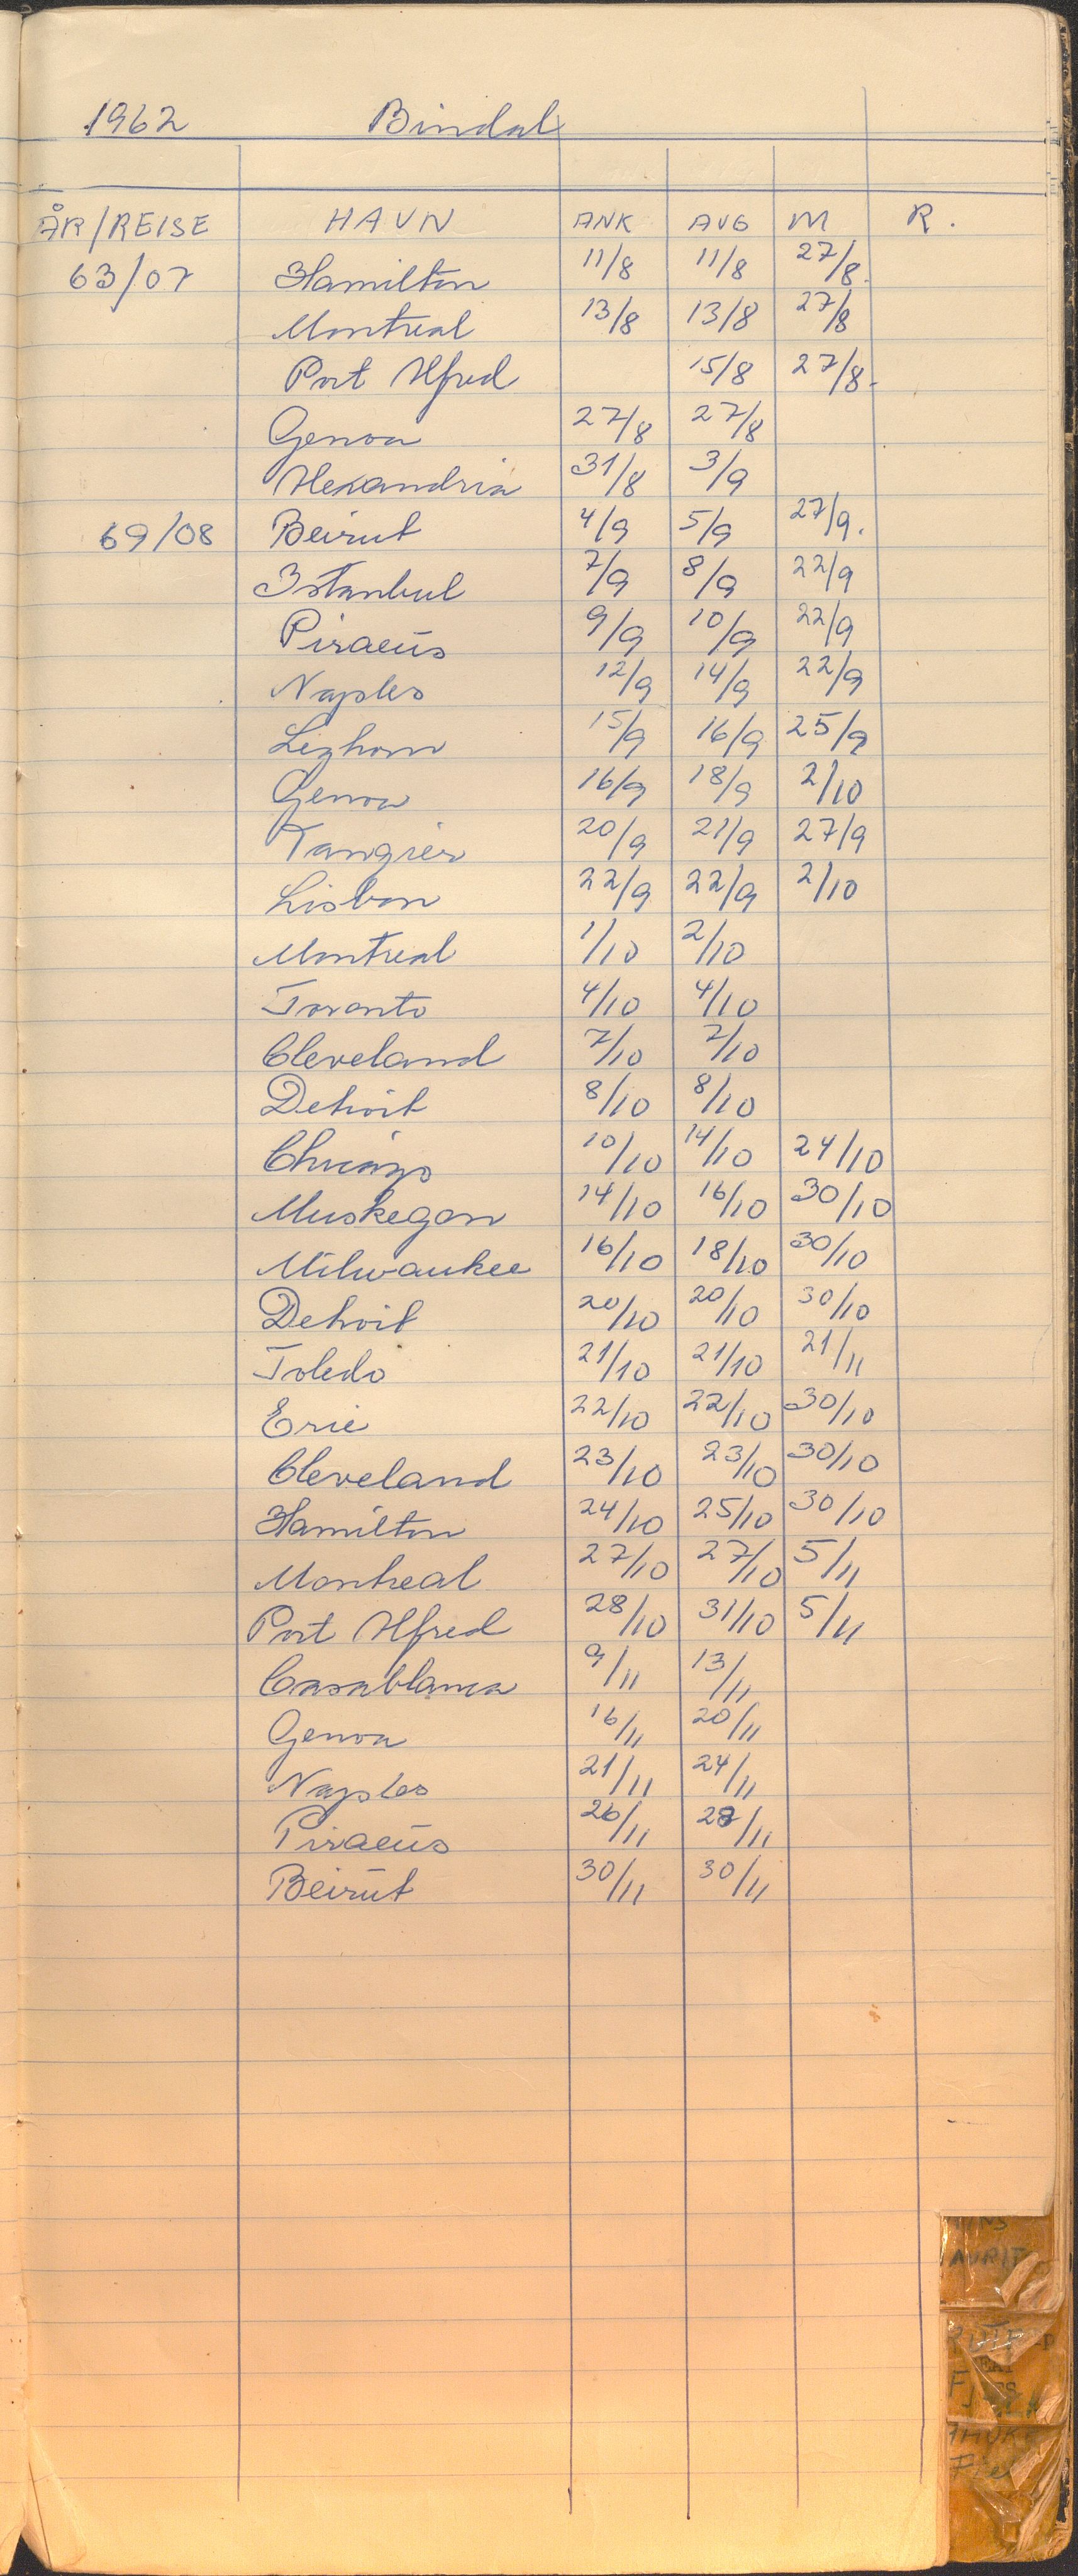 1962 Bindal
ÅR/REISE HAVN ANK AVG M R.
63/07 Hamilton 11/8 11/8 27/8.
Montreal 13/8 13/8 27/8
Port Alfred 15/8 27/8.
Genoa 27/8 27/8
Alexandria 31/8 3/9
69/08 Beirut 4/9 5/9 27/9.
Istanbul 7/9 8/9 22/9
Piraeus 9/9 10/9 22/9
Naples 12/9 14/9 22/9
Leghorn 15/9 16/9 25/9
Genoa 16/9 18/9 2/10
Tangier 20/9 21/9 27/9
Lisbon 22/9 22/9 2/10
Montreal 1/10 2/10
Toronto 4/10 4/10
Cleveland 7/10 7/10
Detroit 8/10 8/10
Chicago 10/10 14/10 24/10
Muskegon 14/10 16/10 30/10
Milwaukee 16/10 18/10 30/10
Detroit 20/10 20/10 30/10
Toledo 21/10 21/10 21/11
Erie 22/10 22/10 30/10
Cleveland 23/10 23/10 30/10
Hamilton 24/10 25/10 30/10
Montreal 27/10 27/10 5/11
Port Alfred 28/10 31/10 5/11
Casablanca 9/11 13/11
Genoa 16/11 20/11
Naples 21/11 24/11
Piraeus 26/11 28/11
Beirut 30/11 30/11